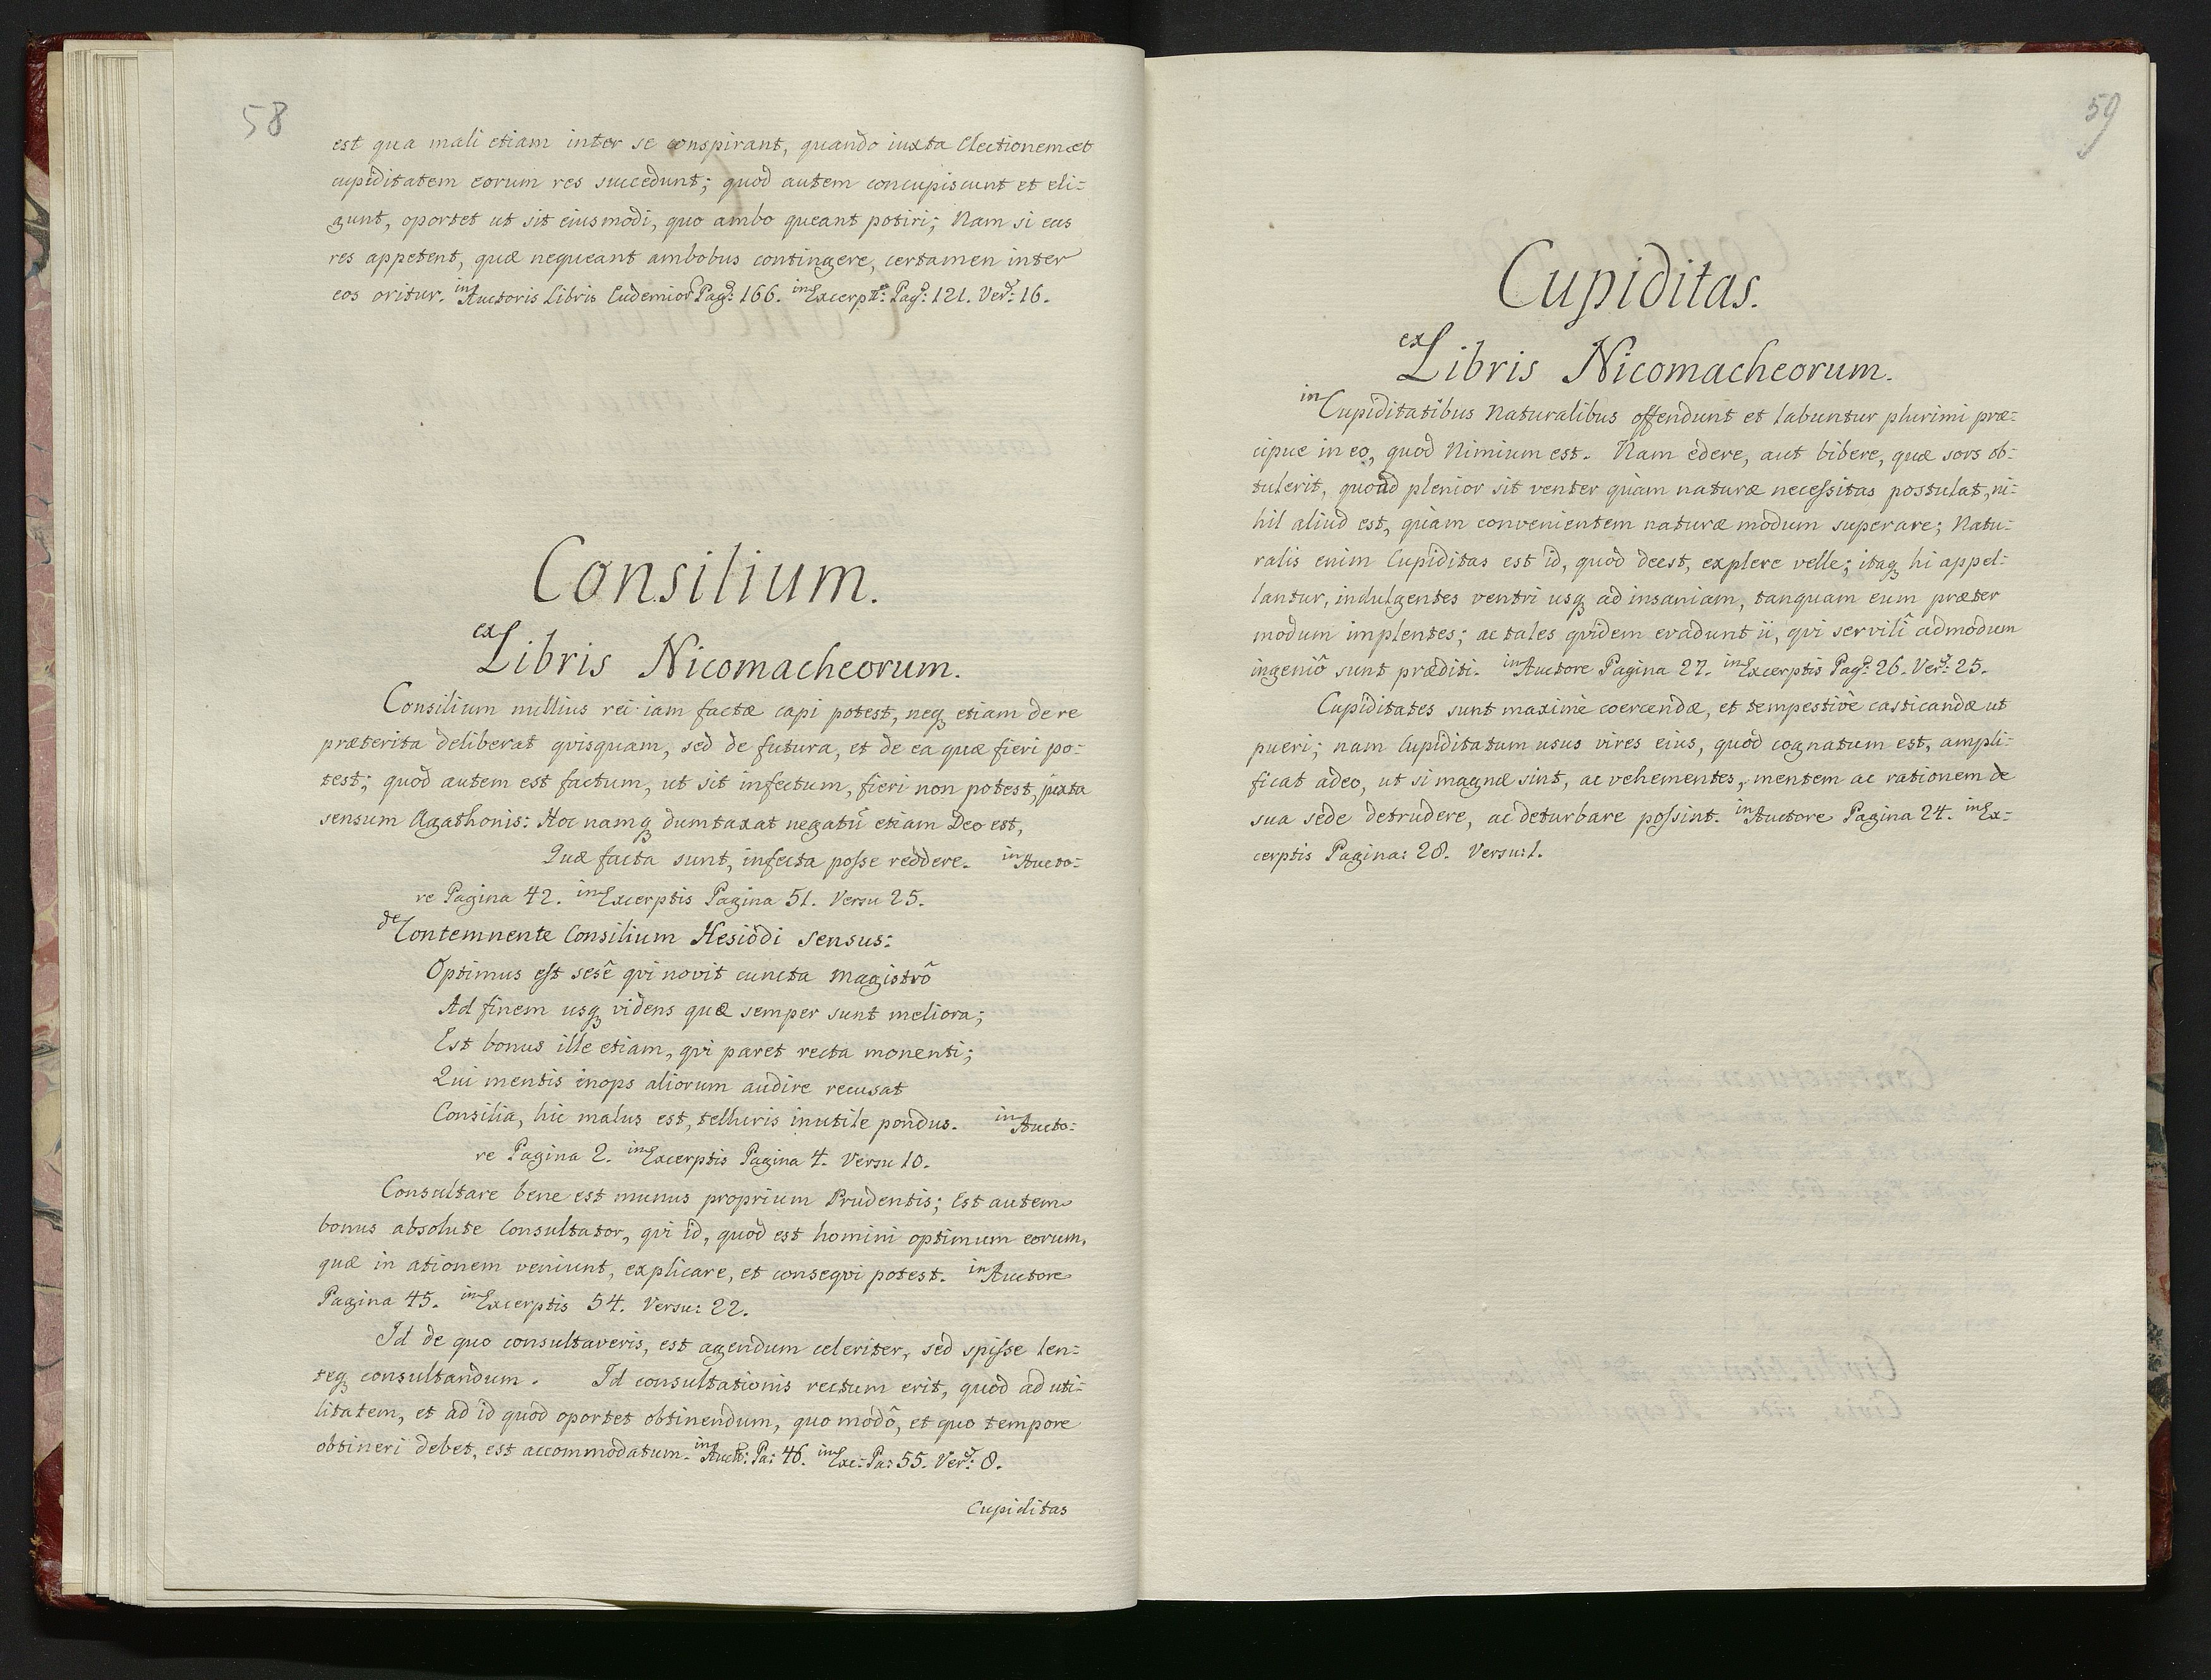 58
est qua mali etiam inter se conspirant, quando iuxta Electionem et
cupiditatem eorum res succedunt; quod autem concupiscunt et eli=
gunt, oportet ut sit eiusmodi, quo ambo queant potiri; Nam si eas
res appetent, quæ nequeant ambobus contingere, certamen inter
eos oritur. in Auctoris Libris Eudemior: Pag: 166. in Excerpt: Pag: 121. Ver: 16.
Consilium.
ex Libris Nicomacheorum.
Consilium nullius rei iam factæ capi potest, neq etiam de re
præterita deliberat qvisquam, sed de futura, et de ea quæ fieri po=
test; quod autem est factum, ut sit infectum, fieri non potest, juxta
sensum Agathonis: Hoc namq dumtaxat negatũ etiam Deo est,
Quæ facta sunt, infecta posse reddere. in Aucto=
re Pagina 42. in Excerptis Pagina 51. Versu 25.
de Contemnente Consilium Hesiodi sensus:
Optimus est sesê qvi novit cuncta magistrô
Ad finem usq videns quæ semper sunt meliora;
Est bonus ille etiam, qvi paret recta monenti;
Qui mentis inops aliorum audire recusat
Consilia, hic malus est, telluris inutile pondus. in Aucto=
re Pagina 2. in Excerptis Pagina 4. Versu 10.
Consultare bene est munus proprium Prudentis; Est autem
bonus absolute Consultator, qvi id, quod est homini optimum eorum,
quæ in ationem veniunt, explicare, et conseqvi potest. in Auctore
Pagina 45. in Excerptis 54. Versu: 22.
Id de quo consultaveris, est agendum celeriter, sed spisse len=
teq consultandum. Id consultationis rectum erit, quod ad uti=
litatem, et ad id quod oportet obtinendum, quo modô, et quo tempore
obtineri debet, est accommodatum. in Auct: Pa: 46. in Exc: Pa: 55. Ver: 8.
Cupiditas
59
Cupiditas.
ex Libris Nicomacheorum.
in Cupiditatibus Naturalibus offendunt et labuntur plurimi præ=
cipue in eo, quod Nimium est. Nam edere, aut bibere, quæ sors ob=
tulerit, quoad plenior sit venter quàm naturæ necessitas postulat, ni=
hil aliud est, quàm convenientem naturæ modum superare; Natu=
ralis enim Cupiditas est id, quod deest, explere velle; itaq hi appel=
lantur, indulgentes ventri usq ad insaniam, tanquam eum præter
modum implentes; ac tales qvidem evadunt ii, qvi servilî admodum
ingeniô sunt præditi. in Auctore Pagina 27. in Excerptis Pag: 26. Ver: 25.
Cupiditates sunt maximè coercendæ, et tempestivè casticandæ ut
pueri; nam Cupiditatum usus vires eius, quod cognatum est, ampli=
ficat adeo, ut si magnæ sint, ac vehementes, mentem ac rationem de
sua sede detrudere, ac deturbare possint. in Auctore Pagina 24. in Ex=
cerptis Pagina: 28. Versu: 1.